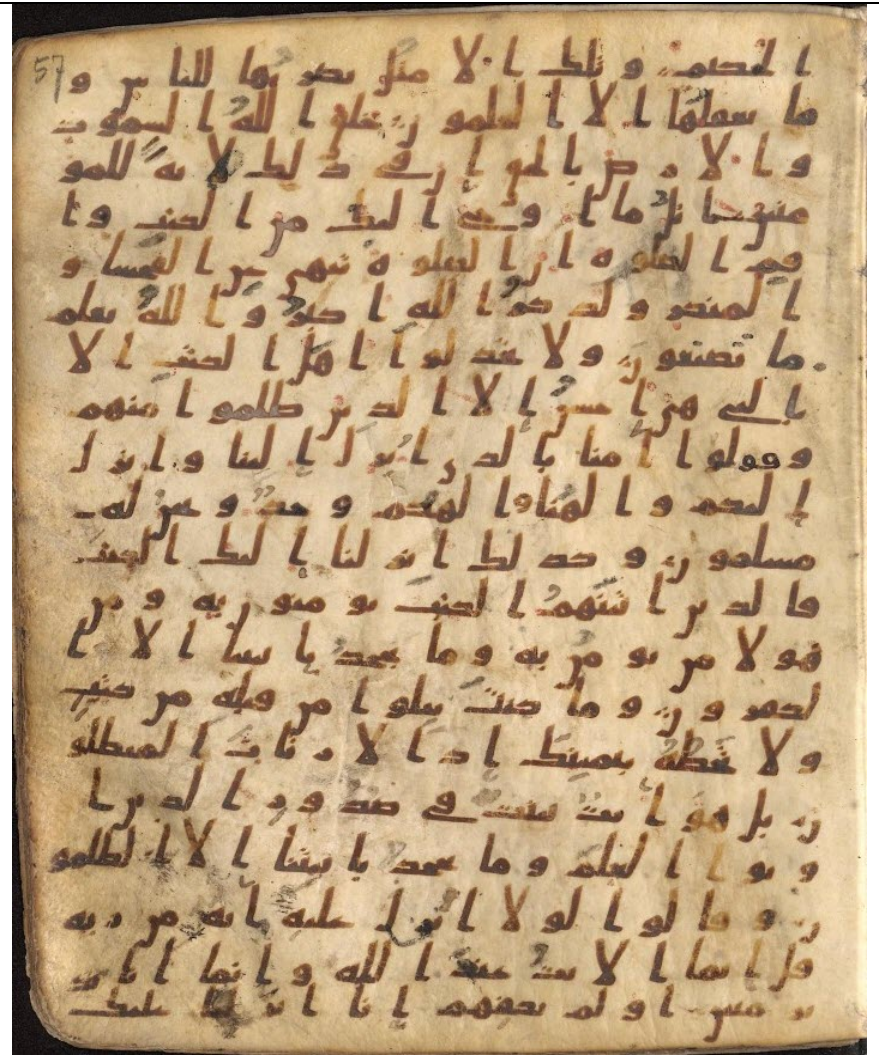 57
الحكيم وتلك الامثل نضربها للناس و
ما يعقلها الا العلمون خلق الله السموت
والارض بالحق ان في ذلك لايه للمو
منين اتل ما اوحي اليك من الكتب وا
قم الصلوه ان الصلوه تنهى عن الفحشا و
المنكر ولذكر الله اكبر والله يعلم
ما تصنعون ولا تجدلوا اهل الكتب الا
بالتي هي احسن الا الذين ظلموا منهم
وقولوا امنا بالذي انزل الينا وانزل
اليكم والهنا والهكم وحد ونحن له
مسلمون وكذلك انزلنا اليك الكتب
فالذين اتينهم الكتب يومنون به ومن
هولا من يومن به وما يجحد بايتنا الا ا
لكفرون وما كنت تتلوا من قبله من كتب
ولا تخطه بيمينك اذا لارتاب المبطلو
ن بل هو ايت بينت في صدور الذين ا
وتوا العلم وما يجحد بايتنا الا الظلمو
ن وقالوا لولا انزل عليه ايه من ربه
قل انما الايت عند الله وانما انا نذ
ير مبين او لم يكفهم انا انزلنا عليك